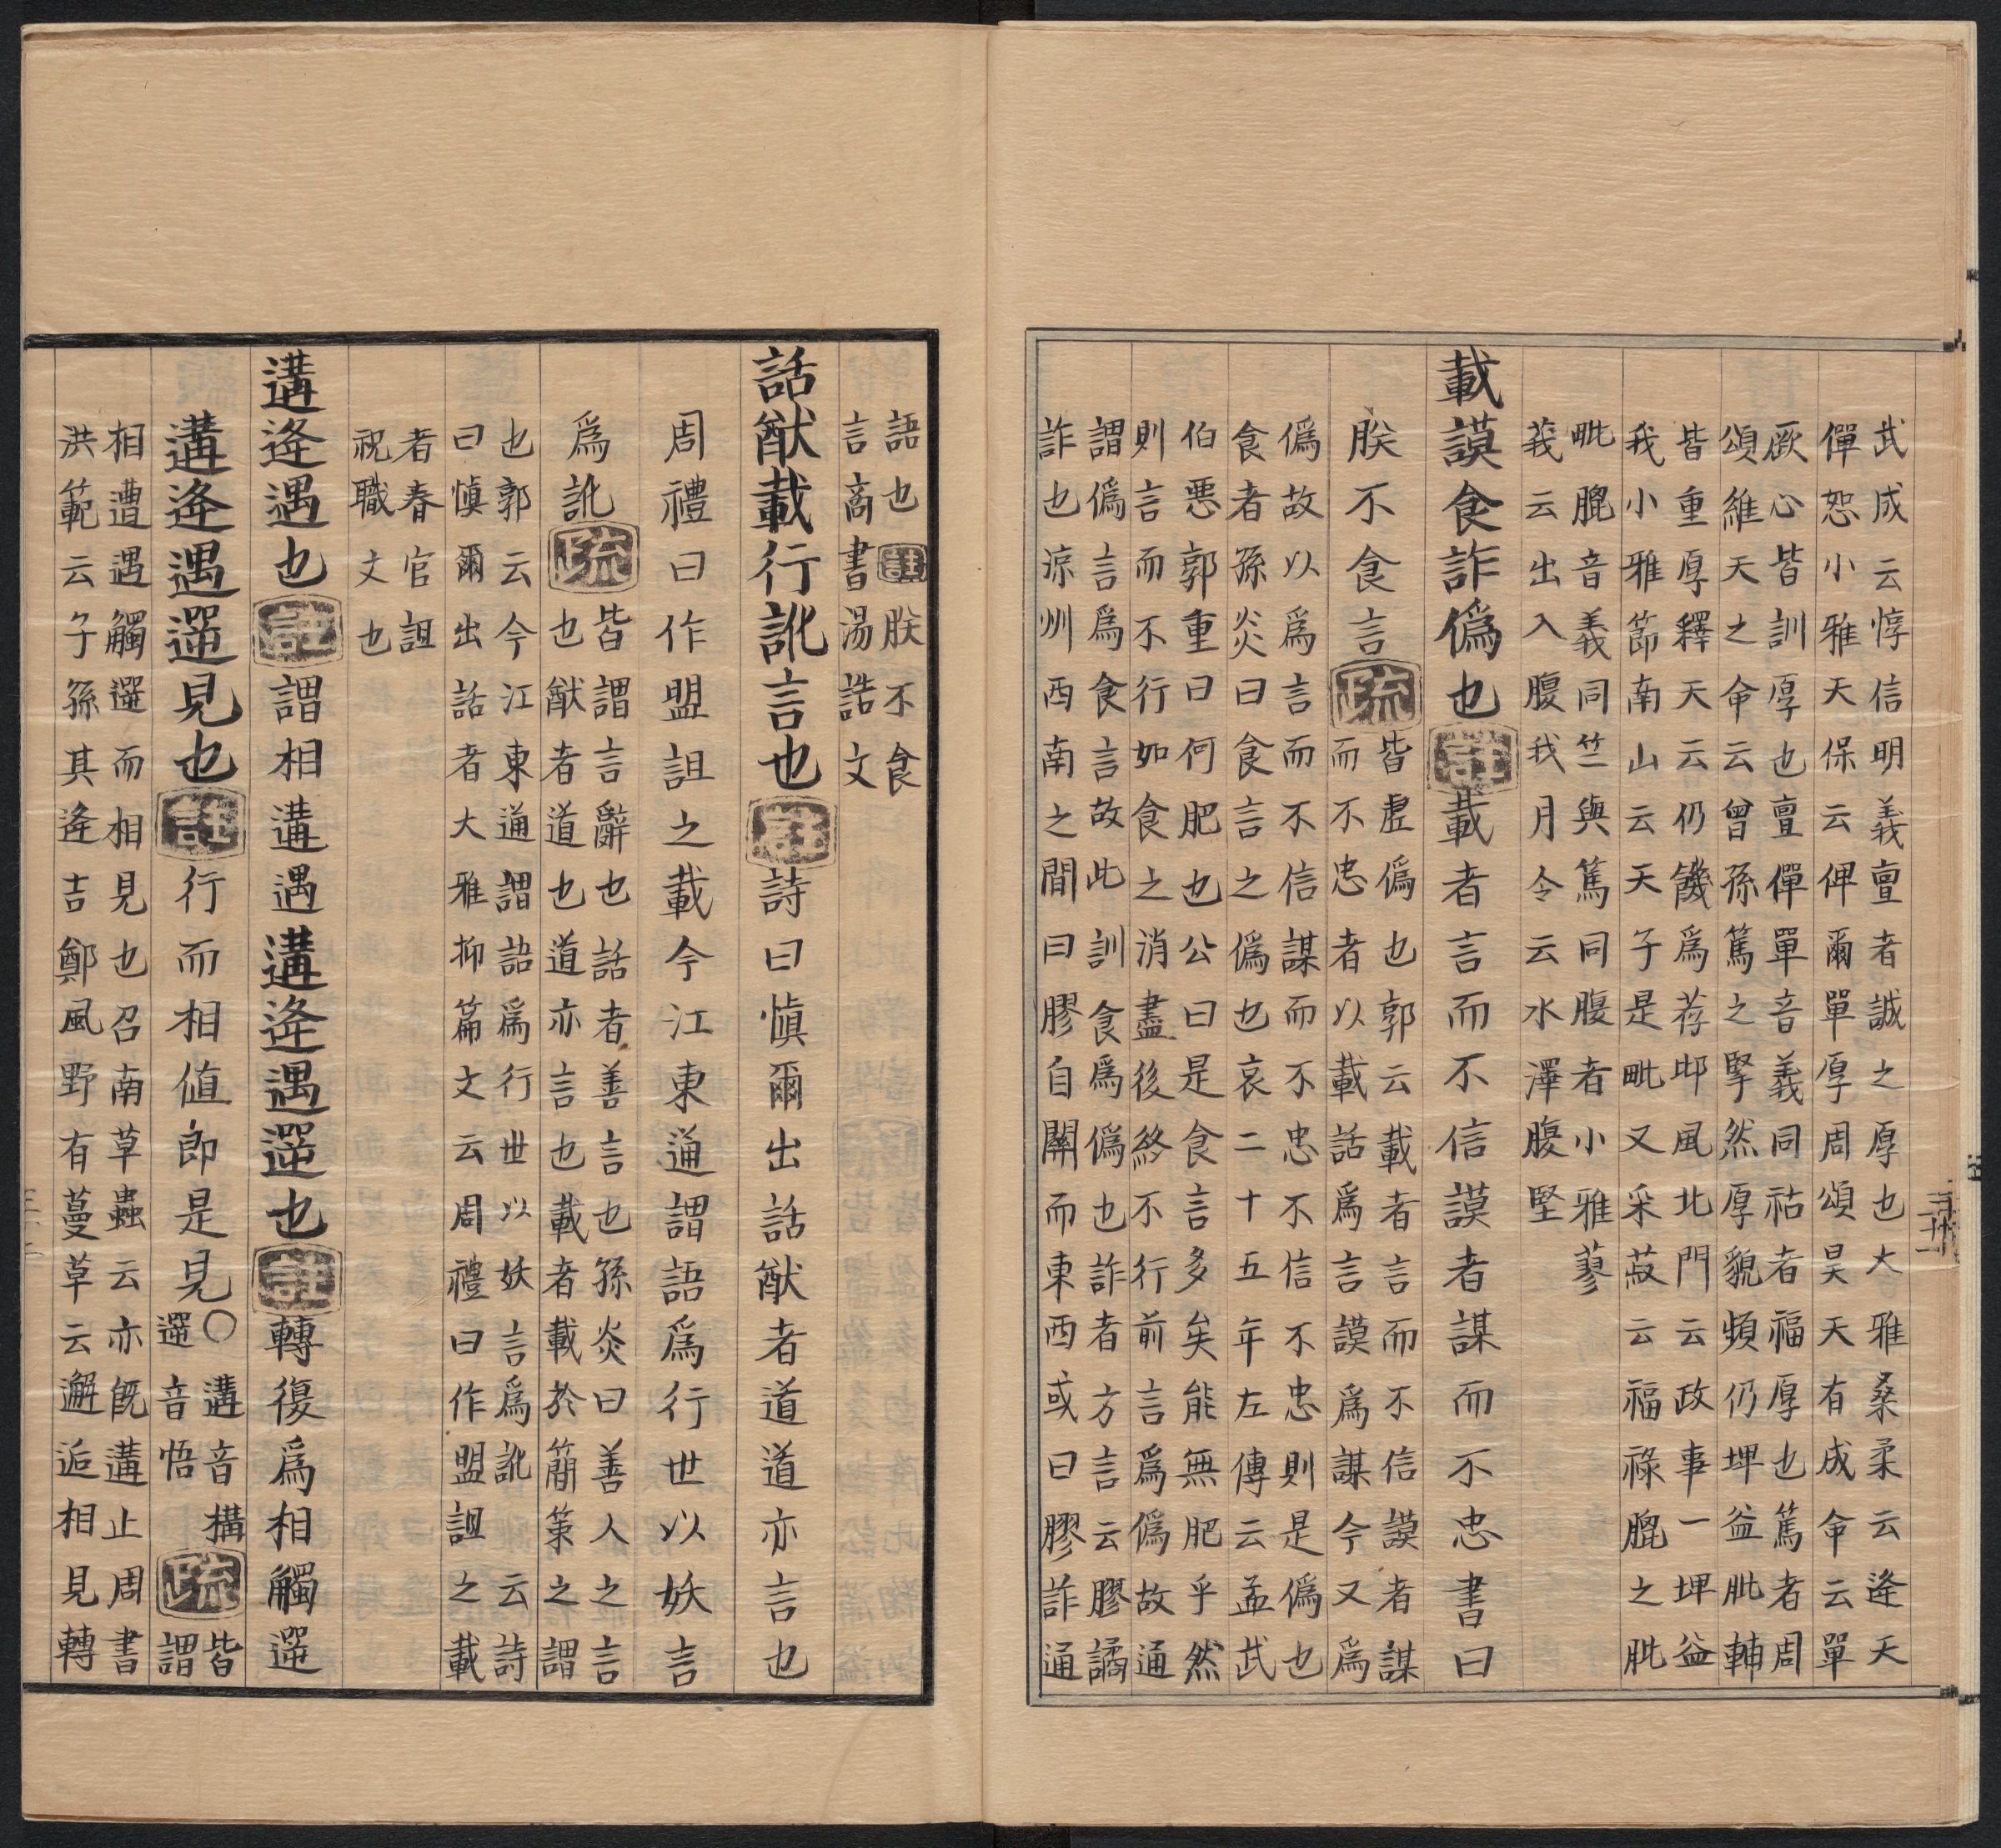 武成云惇信明義亶者誠之厚也大雅桑柔云逄天
僤怒小雅天保云俾爾單厚周頌昊天有成命云單
厥心皆訓厚也亶僤單音義同祜者福厚也篤者周
頌維天之命云曾孫篤之掔然厚貌頻仍埤益朼輔
皆重厚釋天云仍饑爲荐邶風北門云政事一埤益
我小雅節南山云天子是毗又采菽云福祿膍之朼
毗膍音義同竺與篤同腹者小雅蓼
莪云出入腹我月令云水澤腹堅
載謨食詐僞也註載者言而不信謨者謀而不忠書曰
朕不食言疏皆虛僞也郭云載者言而不信謨者謀
而不忠者以載話爲言謨爲謀今又爲
僞故以爲言而不信謀而不忠不信不忠則是僞也
食者孫炎曰食言之僞也哀二十五年左傳云孟武
伯惡郭重曰何肥也公曰是食言多矣能無肥乎然
則言而不行如食之消盡後終不行前言爲僞故通
謂僞言爲食言故此訓食爲僞也詐者方言云膠譎
詐也涼州西南之間曰膠自關而東西或曰膠詐通
語也註朕不食
言商書湯誥文
話猷載行訛言也註詩曰愼爾出話猷者道道亦言也
周禮曰作盟詛之載今江東通謂語爲行世以妖言
爲訛疏皆謂言辭也話者善言也孫炎曰善人之言
也猷者道也道亦言也載者載於簡策之謂
也郭云今江東通謂語爲行世以妖言爲訛云詩
曰愼爾出話者大雅抑篇文云周禮曰作盟詛之載
者春官詛
祝職文也
遘逄遇也註謂相遘遇遘逄遇遻也註轉復爲相觸遻
遘逄遇遻見也註行而相値卽是見○遘音搆
遻音悟疏皆謂
相遭遇觸遻而相見也召南草蟲云亦旣遘止周書
洪範云子孫其逄吉鄭風野有蔓草云邂逅相見轉